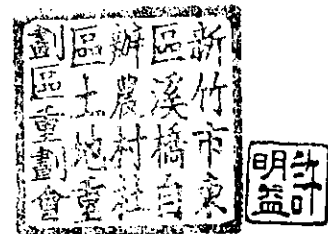 新竹市東
區溪橋自
辦農村社
區土地重
劃區重劃會
許
明益